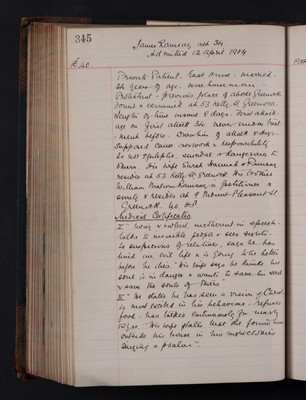 345
James Ramsay aet 34
Admitted 12 April 1904
£40
Private Patient. East House - married.
34 years of age.
Protestant - previous place of abode Greenock
Found & examined at 53 Kelly St Greenock
Length of time insane 8 days. First attack
age on first attack 34. never under treat
- ment before. Duration of attack 8 days.
Supposed cause overwork & responsibility
Is not epileptic, suicidal or dangerous to
others. His wife Sarah Ramsay
resides at 53 Kelly St Greenock. His brother
William Ramsay is petitioner &
resides at 9 Mount Pleasant St
Greenock. no
Medical Certificates
I Noisy & violent, incoherent in speech
talks to invisible people & sees sights.
Is suspicious of relatives, says he has
lived an evil life & is going to be better
before he dies. His wife says he thinks his
soul is in danger & wants to save his soul
& save the souls of others
II He states he has seen a vision of Christ
is most excited in his behaviour - refuses
food - has talked continuously for nearly
days. "His wife states that she found him
outside his house in his nightclothes
singing a psalm".